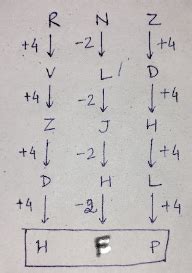 R N Z
+4 -2 +4
V L D
+4 -2 +4
Z J H
+4 -2 +4
D H L
+4 -2 +4
H F P